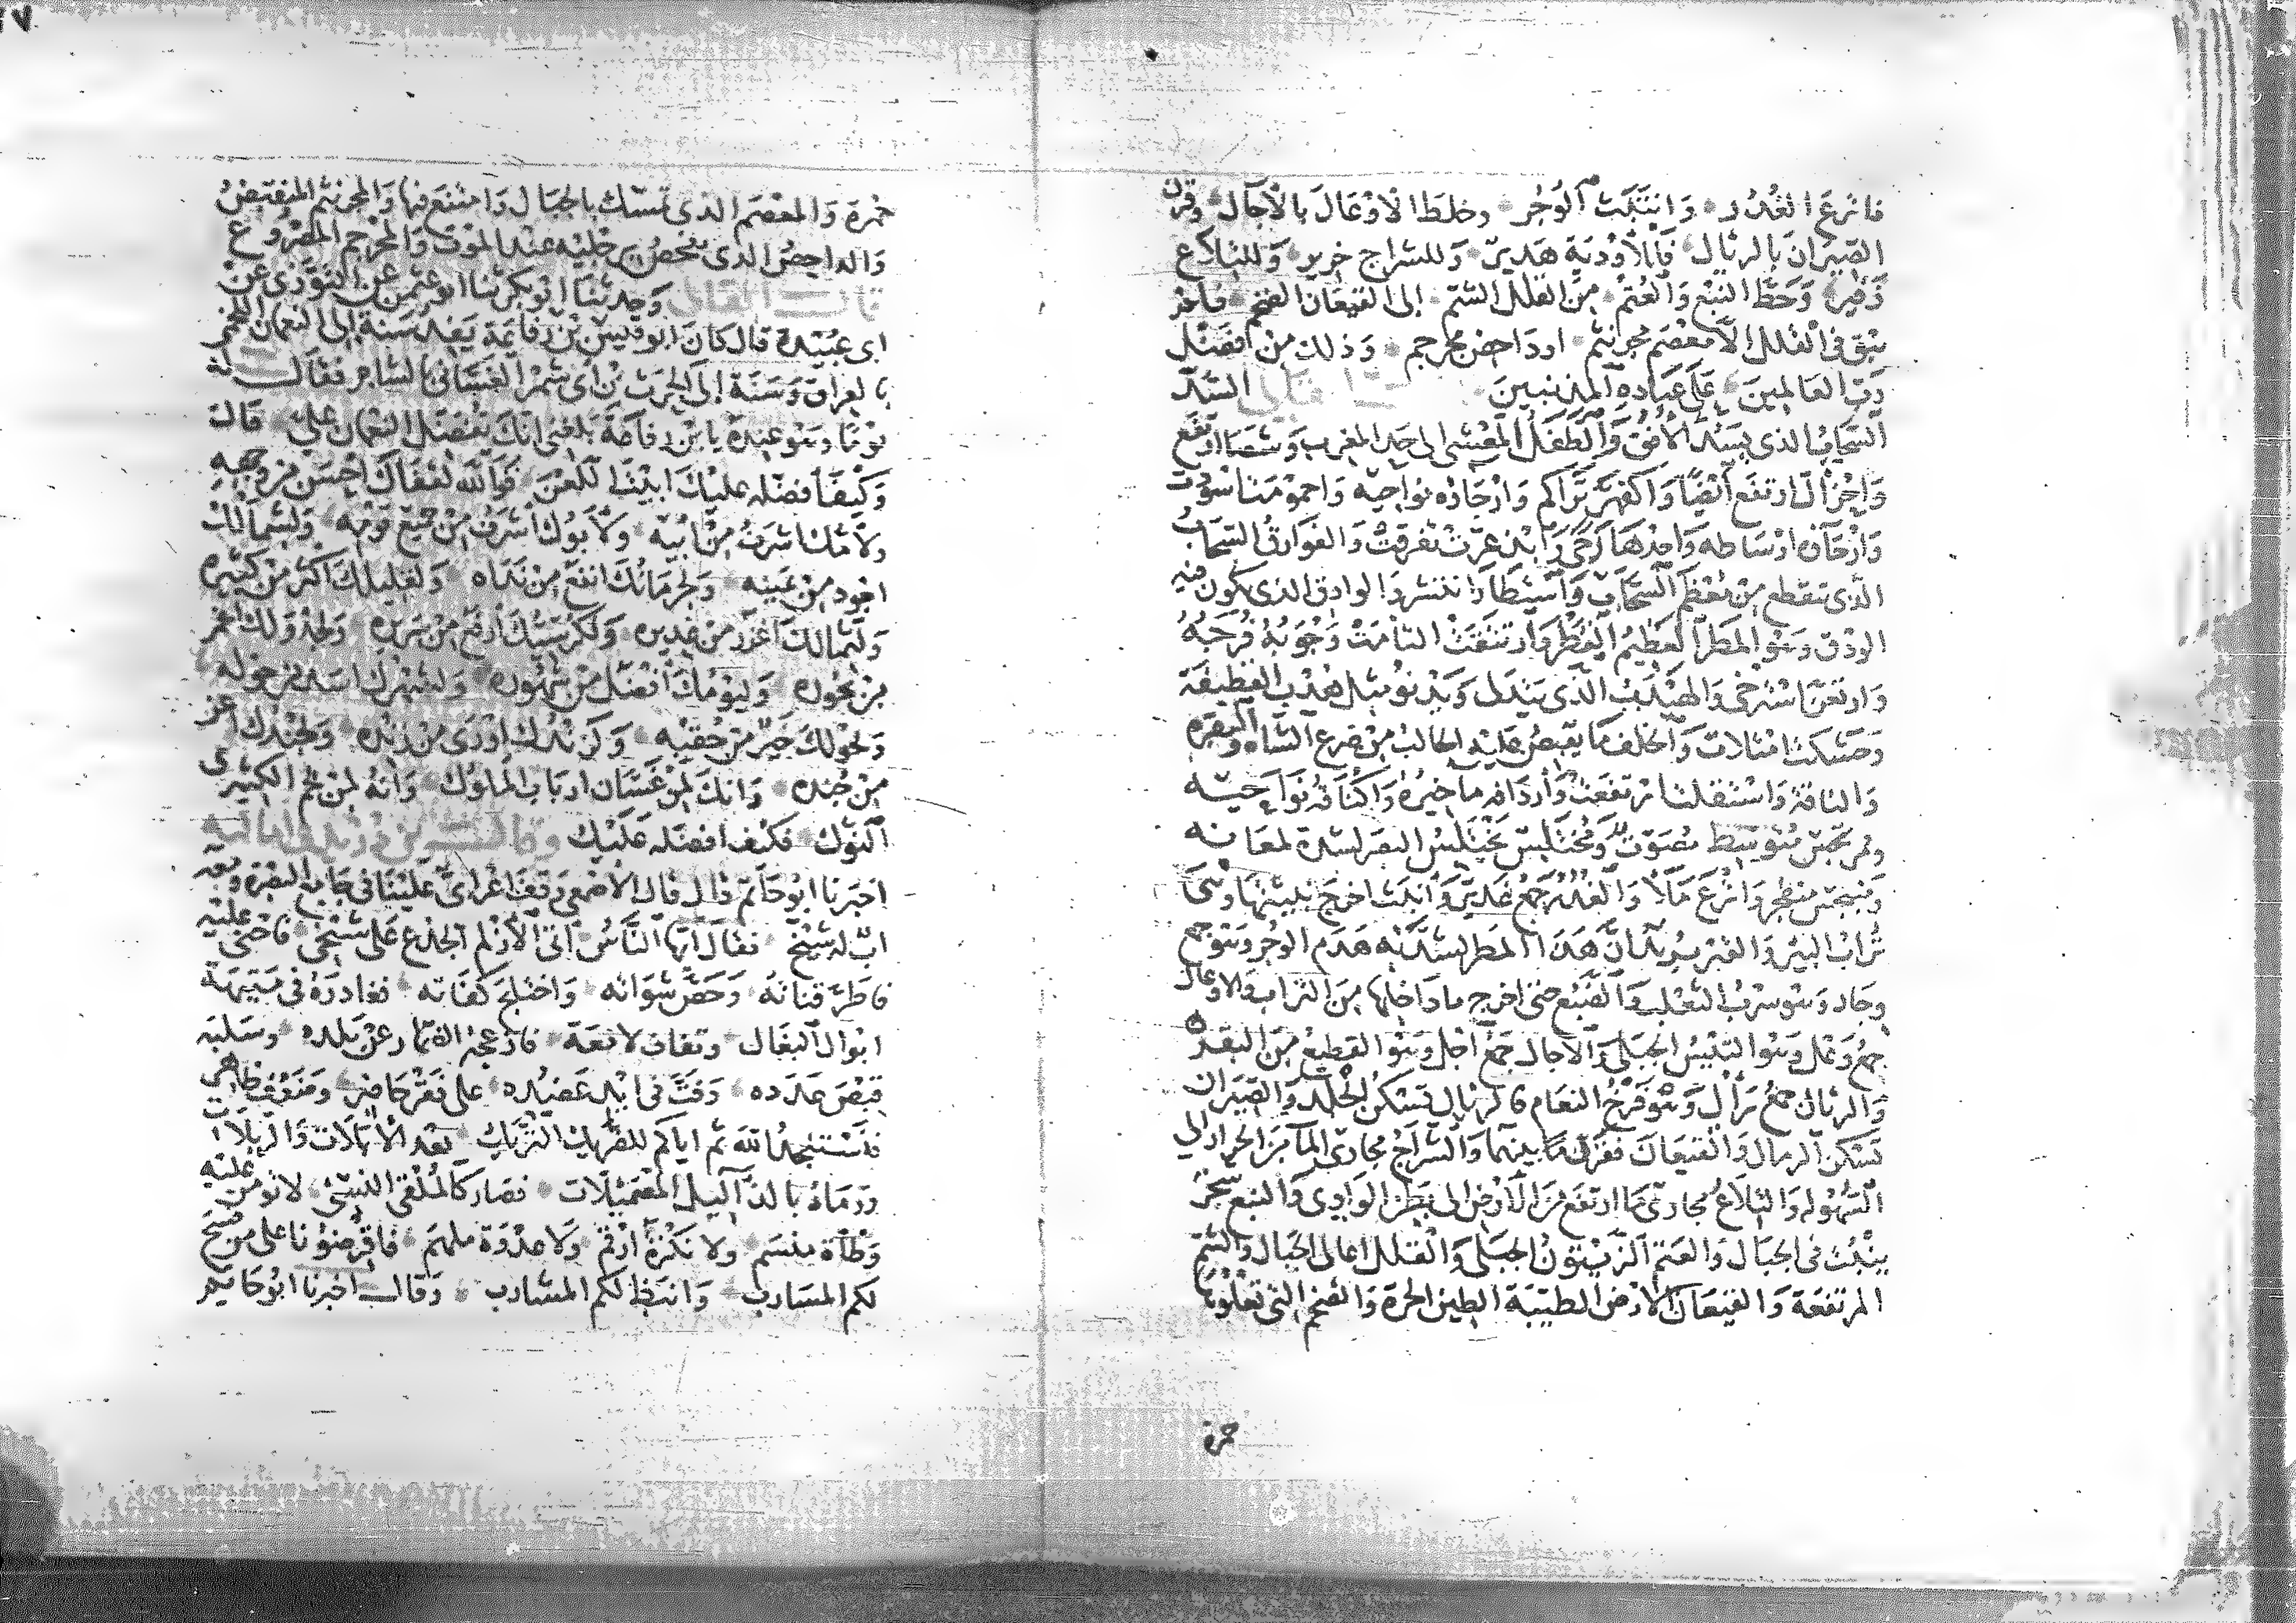 فاترع الغُدُر وَانتَبَثَت الوُجُر وخلَط الاوْعَالَ بالآجال وقرن
الصِيران بالرئال فَللأودية هَديرٌ وللشراج خرير وَللتلاع
زَفير وَحَطَّ النَبْع وَالعُتُم من القُلل الشّم الى القيعان الصُحْم فلم
يَبْقَ في القُلل الّا مُعْصَم مجرنثم او داحض مجرجم وَذلك من فَضْل
رَبّ العَالمِينَ عَلَى عِبَاده المذنبينَ السُدّ
السَّحَابُ الذى يسُدّ الأفق وَالطَفَل العَشى الى حَد المغرب وَشَصَا ارتفع
وَاحْزَألّ ارتفَع أيضًا وَاكفهَرّ تَراكم وَارْجَاؤه نواحِيه وَاحمَوْمَت اسْوَدّت
وَارْحَاؤه اوْسَاطه وَاحِدهَا رَحًى وَابذعَرّت تَفرقتْ وَالفَوارقُ السَّحَابُ
الذى يتقطع مِنْ مُعْظم السَّحَاب وَاستطارَ انتشر وَالوادق الذى يكون فيه
الوَدْق وَهو المطر العَظِيم القَطْر وَارتتقَتْ التأمَتْ وَجُوَبُهُ فُرَجُهُ
وَارتعَن استرخى وَالهَيْدَبُ الّذى يَتدَلى وَيَدْنو مثل هُدْب القَطيفَة
وَحَشَكَت امتَلات وَالخلف مَا يَقبضُ عَليْه الحالبُ مِنْ ضرع الشاه وَالبقره
وَالناقة وَاستقلت ارتفعَت وَأردافه مَآخيرُهُ وَأكنافهُ نَوَاحيْه
مُصَوّت وَمُختلِسٌ يَختَلِسُ البَصَر لشدة لمعَانه
وَمُنبَجسٌ منفجر وَاترَعَ مَلأ وَالغُدُر جَمْعُ غَدير وَانتَبَث اخرَج نبيثتها وَهى
تُرابُ البئر وَالقبر يريدُ انّ هَذا المطر لشدّته هَدَم الوُجُر وَهو جمع
وِجَار وَهو سَرَبُ الثعْلب وَالضبُع حَتى اخرج ما دَاخلها مِنَ التراب وَالاوعال
جَمْعُ وَعْل وَهوَ التَيْسُ الجبَلى وَالآجال جَمْعُ اجل وَهوَ القطيعُ مِنَ البقَر
وَالرئال جمعُ رَأل وَهوَ فَرْخُ النعَام فالرئال تَسْكن الجَلَد وَالصِيرَان
تَسْكن الرمال وَالقيعَان فقرَنَ مَا بينهما وَالشراجُ مجارى المآ مِنَ الحِرار الى
السُّهُوله وَالتِلَاعُ مجارى مَا ارتفَع مِنَ الارْض الى بَطْن الوَادِى وَالنبع شجَر
يَنبُت في الجبَال وَالعُتم الزّيتونُ الجبَلى وَالقُلل اعالى الجبَال وَالشُّم
المرتفعة وَالقيعَان الارْض الطيبَة الطين الحرة وَالصُحْم التى تعلوها
حمرة
حُمْرة وَالمعْصَم الذى تمسّك بالجبَال وَامتنع فيها وَالمجرنثم المنقبضُ
وَالداحِضُ الذى يفحَصُ برجْليْه عِنْد الموْت وَالمجَرجم المصْروع
وَحدثنَا ابوبكر ثنا ابوعثمن عَن التوّزى عَنْ
ابى عبَيْدة قال كانَ ابوقيس بْن رفاعة يَفدُ سَنة إلى النعمان اللخمى
بالعِراق وَسَنَة إلى الحرث بْن ابى شمر الغسَّانى بالشام فقال له
يوْمًا وهو عِنده يا ابْن رفاعة بلغنى انّك تفضّل النعمان علىّ قال
وَكيْفَ أفضّله عليْكَ ابيْتَ اللّعْن فَوالله لقفاكَ احسَن من وجهه
ولأمّك اشرَفُ مِنْ ابيه وَلأبوك اشرَفُ مِنْ جَميع قومِه وَلشمالك
اجوَد مِنْ يَمينه وَلحِرمانُك انفع مِنْ نَداه وَلقليلك اكثر مِنْ كثيره
وَلثمالك اغزر مِن غديره وَلكرسيّك ارفع مِنْ سَريره وَلجدْوَلك اغمر
مِنْ بحُوره وَليوْمُك أفضَل مِنْ شهُوره وَلشهرك امَدّ مِن حَوله
وَلحولك خيْر مِنْ حُقبه وَلزَندُك اوْرَى مِنْ زَنده وَلجُندك اعز
مِنْ جُنده وَانكَ لمِنْ غَسَّان ارباب الملوك وَانهُ لمِنْ لخم الكثيرى
النّوك فكيْف افضّله عَليْك
اخبَرنا ابوحَاتم قال قال الأصمعى وَقَف اعرابىّ عَليْنا في جَامِع البصْرة ومعه
ابٌ له شيْخ فقال ايها النَّاس اتى الأزْلم الجذَع عَلى شيْخى فاحنى عليْه
فاطَرّ قناته وَحَصّ شوَاته وَاختلج كفاته فغادرَهُ فى مَتيهة
ابْوال البغَال وتعاف لامعَة فازعجه الدّمار عنْ بَلَده وسَلبَه
قبْصَ عَدَده وَفتّ في ايْد عَضُده عَلى فقْر حَاضر وَضَعْف ظاهر
فنَسْتنجدُ اللّه ثم اياكم للضَّريك النزيك بعْد الأبَلات وَالربلات
وَرمَاهُ بالدّآليل المصْمئلّات فصَار كالمُلقى النسْئ لا تؤمن عليْه
وَطْأة مَنْسَم ولا نكْزَة ارْقم وَلا عَدْوَة ملهم فاقرضونا على من نهج
لكم المسَارب وَانبَط لكم المشارب وَقال اخبرنا ابوحَاتم